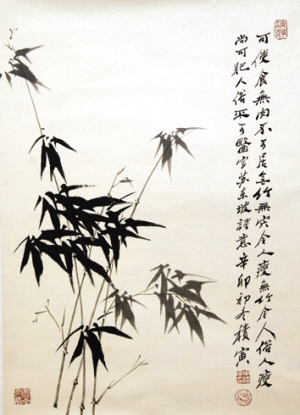 可使食無肉不可居無竹無肉令人瘦無竹令人俗人瘦
尚可肥人俗不可醫寫蘇東坡詩意辛卯初冬積寅